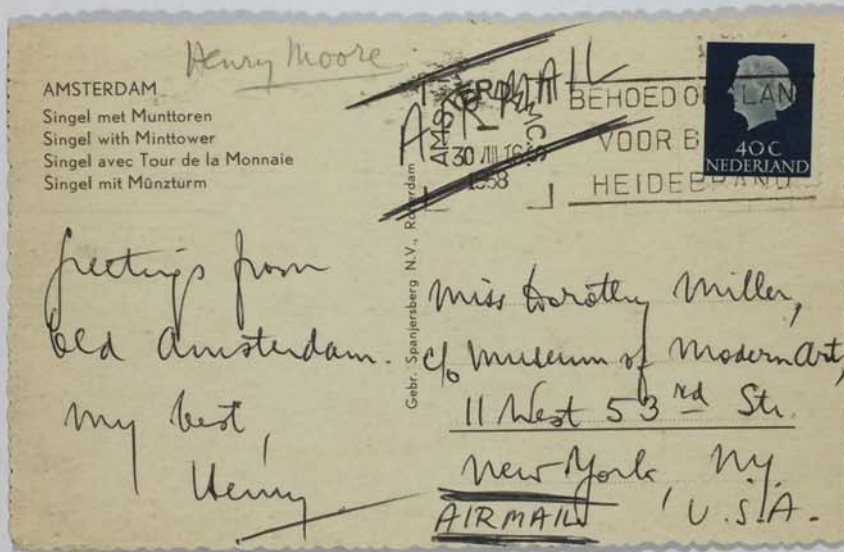 Henry Moore
AMSTERDAM
Singel met Munttoren
Singel with Minttower
Singel avec Tour de la Monnaie
Singel mit Münzturm
AIRMAIL
AMSTERDAM C.
30 VIII 16
1958
BEHOED O LAN
VOOR B
HEIDEBRAND
40C
NEDERLAND
Gebr. Spanjersberg N.V., Rotterdam
greetings from
old Amsterdam.
my best,
Henry
Miss Dorothy Miller,
c/o Museum of Modern Art,
11 West 53rd Str.
New York, NY.
AIRMAIL U.S.A.